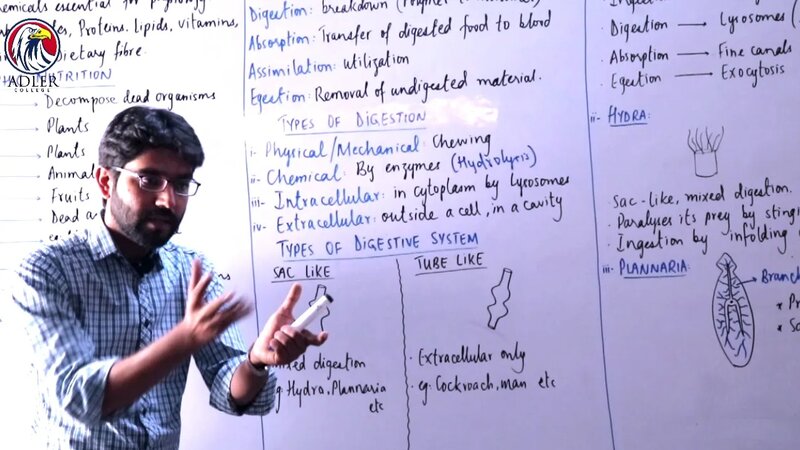 ADLER
COLLEGE
chemicals essential for
Proteins. lipids, vitamins,
Dietary fibre.
NUTRITION
Decompose dead organisms
Plants
Plants
Animal
Fruits
Dead
Digestion: breakdown
Absorption: Transfer of digested food to blood
Assimilation: utilization
Egestion: Removal of undigested material.
TYPES OF DIGESTION
i- Physical/Mechanical: Chewing
ii- Chemical: By enzymes (Hydrolysis)
iii- Intracellular: in cytoplasm by Lysosomes
iv- Extracellular: outside a cell, in a cavity
TYPES OF DIGESTIVE SYSTEM
SAC LIKE
mixed digestion
Hydra, Plannaria
etc
TUBE LIKE
· Extracellular only
· eg: Cockroach, man etc
Digestion → Lysosomes
Absorption → Fine canals
Egestion → Exocytosis
ii- HYDRA:
Sac-like, mixed digestion.
· Paralyses its prey by
· Ingestion by infolding
iii- PLANNARIA: